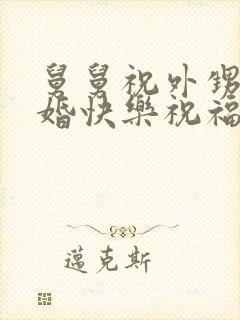 舅舅祝外甥
婚快樂祝福
邁克斯